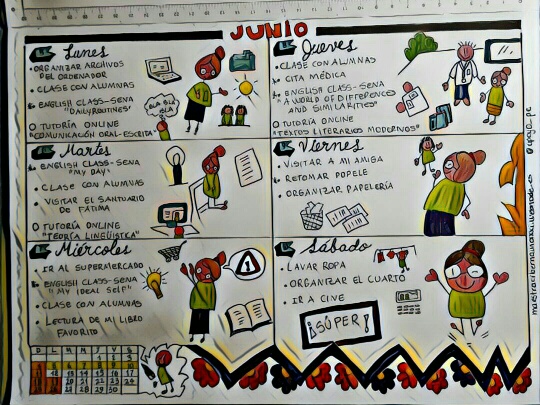 JUNIO
Lunes
• ORGANIZAR ARCHIVOS
DEL ORDENADOR
• CLASE CON ALUMNAS
ENGLISH CLASS-SENA
"DAILY ROUTINES"
O TUTORÍA ONLINE
"COMUNICACIÓN ORAL-ESCRITA"
BLA BLÁ
BLA
Jueves
• CLASE CON ALUMNAS
CITA MÉDICA
ENGLISH CLASS-SENA
"A WORLD OF DIFFERENCES
AND SIMILARITIES"
O TUTORÍA ONLINE
"TEXTOS LITERARIOS MODERNOS"
Martes
ENGLISH CLASS-SENA
"MY DAY"
• CLASE CON ALUMNAS
• VISITAR EL SANTUARIO
DE FÁTIMA
O TUTORÍA ONLINE
"TEORÍA LINGÜÍSTICA"
Viernes
• VISITAR A MI AMIGA
• RETOMAR POPELE
• ORGANIZAR PAPELERÍA
Miércoles
• IR AL SUPERMERCADO
ENGLISH CLASS-SENA
MY IDEAL SELF"
• CLASE CON ALUMNAS
• LECTURA DE MI LIBRO
FAVORITO
1
Sábado
• LAVAR ROPA
• ORGANIZAR EL CUARTO
• IR A CINE
¡SÚPER!
D L M M J V S